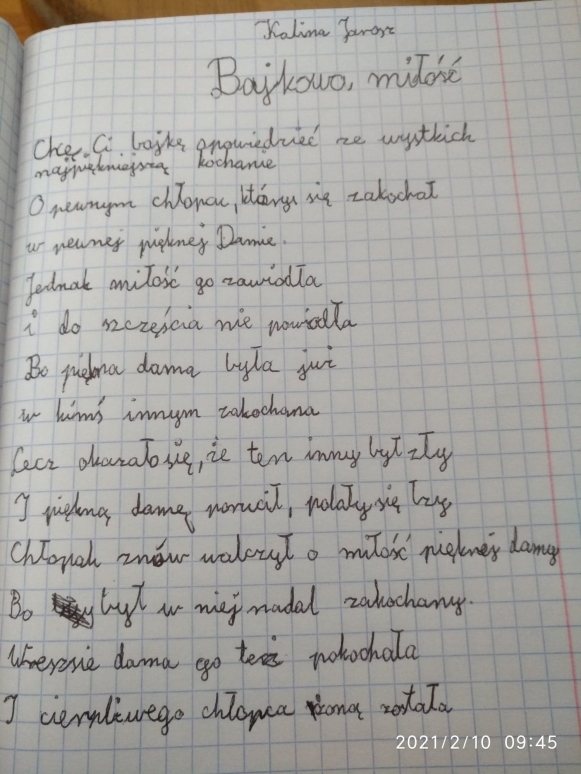 Kalina Jarosz
Bajkowa, miłość
Chcę Ci bajkę opowiedzieć ze wystkich
najpiękniejszą kochanie
O pewnym chłopcu, który się zakochał
w pewnej pięknej Damie.
Jednak miłość go zawiodła
i do szczęścia nie powiodła
Bo piękna dama była już
w kimś innym zakochana
Lecz okazało się, że ten inny był zły
I piękną damę porucił, polały się łzy
Chłopak znów walczył o miłość pięknej damy
Bo był w niej nadal zakochany.
Wreszsie dama go też pokochała
I cierpliwego chłopca żoną została
2021/2/10 09:45